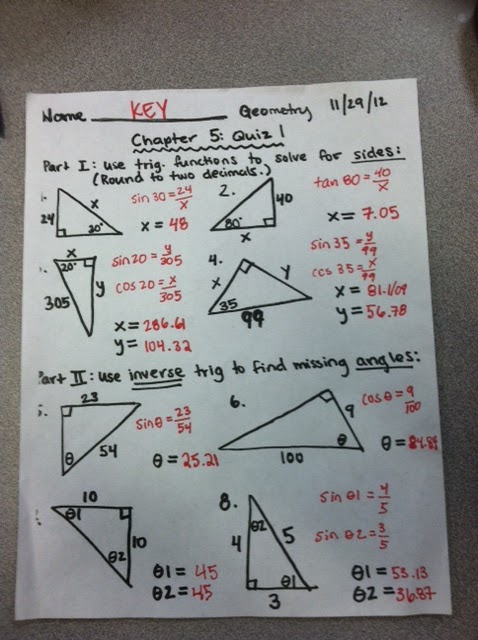 Name KEY Geometry 11/29/12
Chapter 5: Quiz 1
Part I: use trig. functions to solve for sides:
(Round to two decimals.)
24 x 30°
sin 30 = 24/x
x = 48
2. 40 80° x
tan 80 = 40/x
x = 7.05
x 20° y 305
sin 20 = y/305
cos 20 = x/305
x = 286.61
y = 104.32
4. x y 35 99
sin 35 = y/99
cos 35 = x/99
x = 81.09
y = 56.78
Part II: use inverse trig to find missing angles:
23 54 θ
sin θ = 23/54
θ = 25.21
6. 9 θ 100
cos θ = 9/100
θ = 84.84
10 θ1 10 θ2
θ1 = 45
θ2 = 45
8. θ2 4 5 θ1 3
sin θ1 = 4/5
sin θ2 = 3/5
θ1 = 53.13
θ2 = 36.87